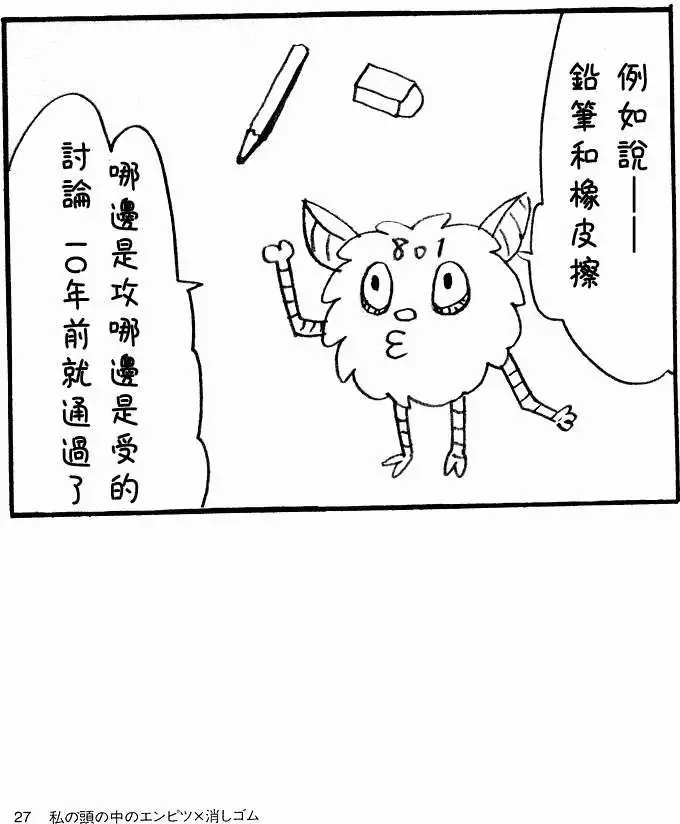 例如說——
鉛筆和橡皮擦
801
哪邊是攻哪邊是受的
討論 一〇年前就通過了
27 私の頭の中のエンピツ×消しゴム